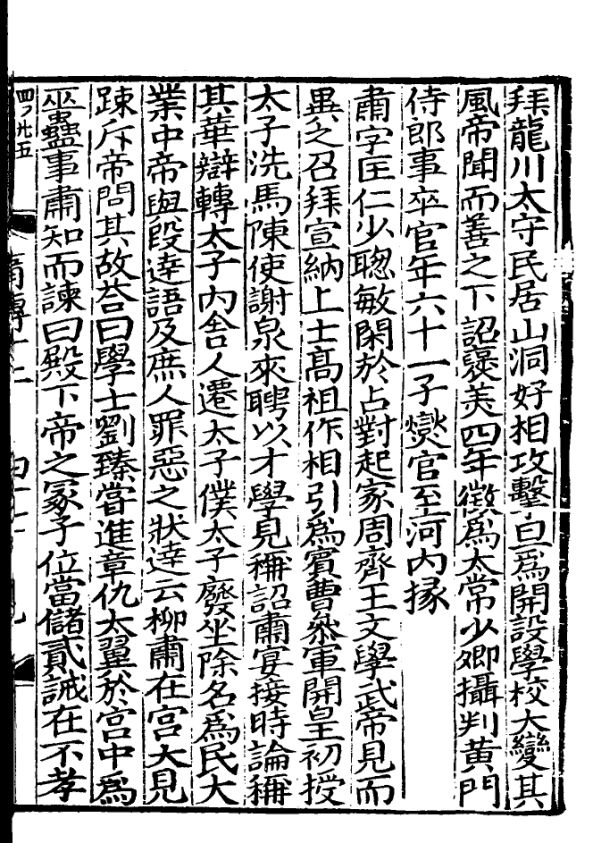 拜龍川太守民居山洞好相攻擊旦爲開設學校大變其
風帝聞而善之下詔襃美四年徵爲太常少卿攝判黃門
侍郎事卒官年六十一子爕官至河内掾
肅字匡仁少聰敏閑於占對起家周齊王文學武帝見而
異之召拜宣納上士髙祖作相引爲賓曹叅軍開皇初授
太子洗馬陳使謝泉來聘以才學見稱詔肅宴接時論稱
其華辯轉太子内舍人遷太子僕太子廢坐除名爲民大
業中帝與段逹語及庶人罪惡之狀逹云柳肅在宫大見
踈斥帝問其故荅曰學士劉臻甞進章仇太翼於宫中爲
巫蠱事肅知而諫曰殿下帝之冢子位當儲貳誡在不孝
四ノ廿五